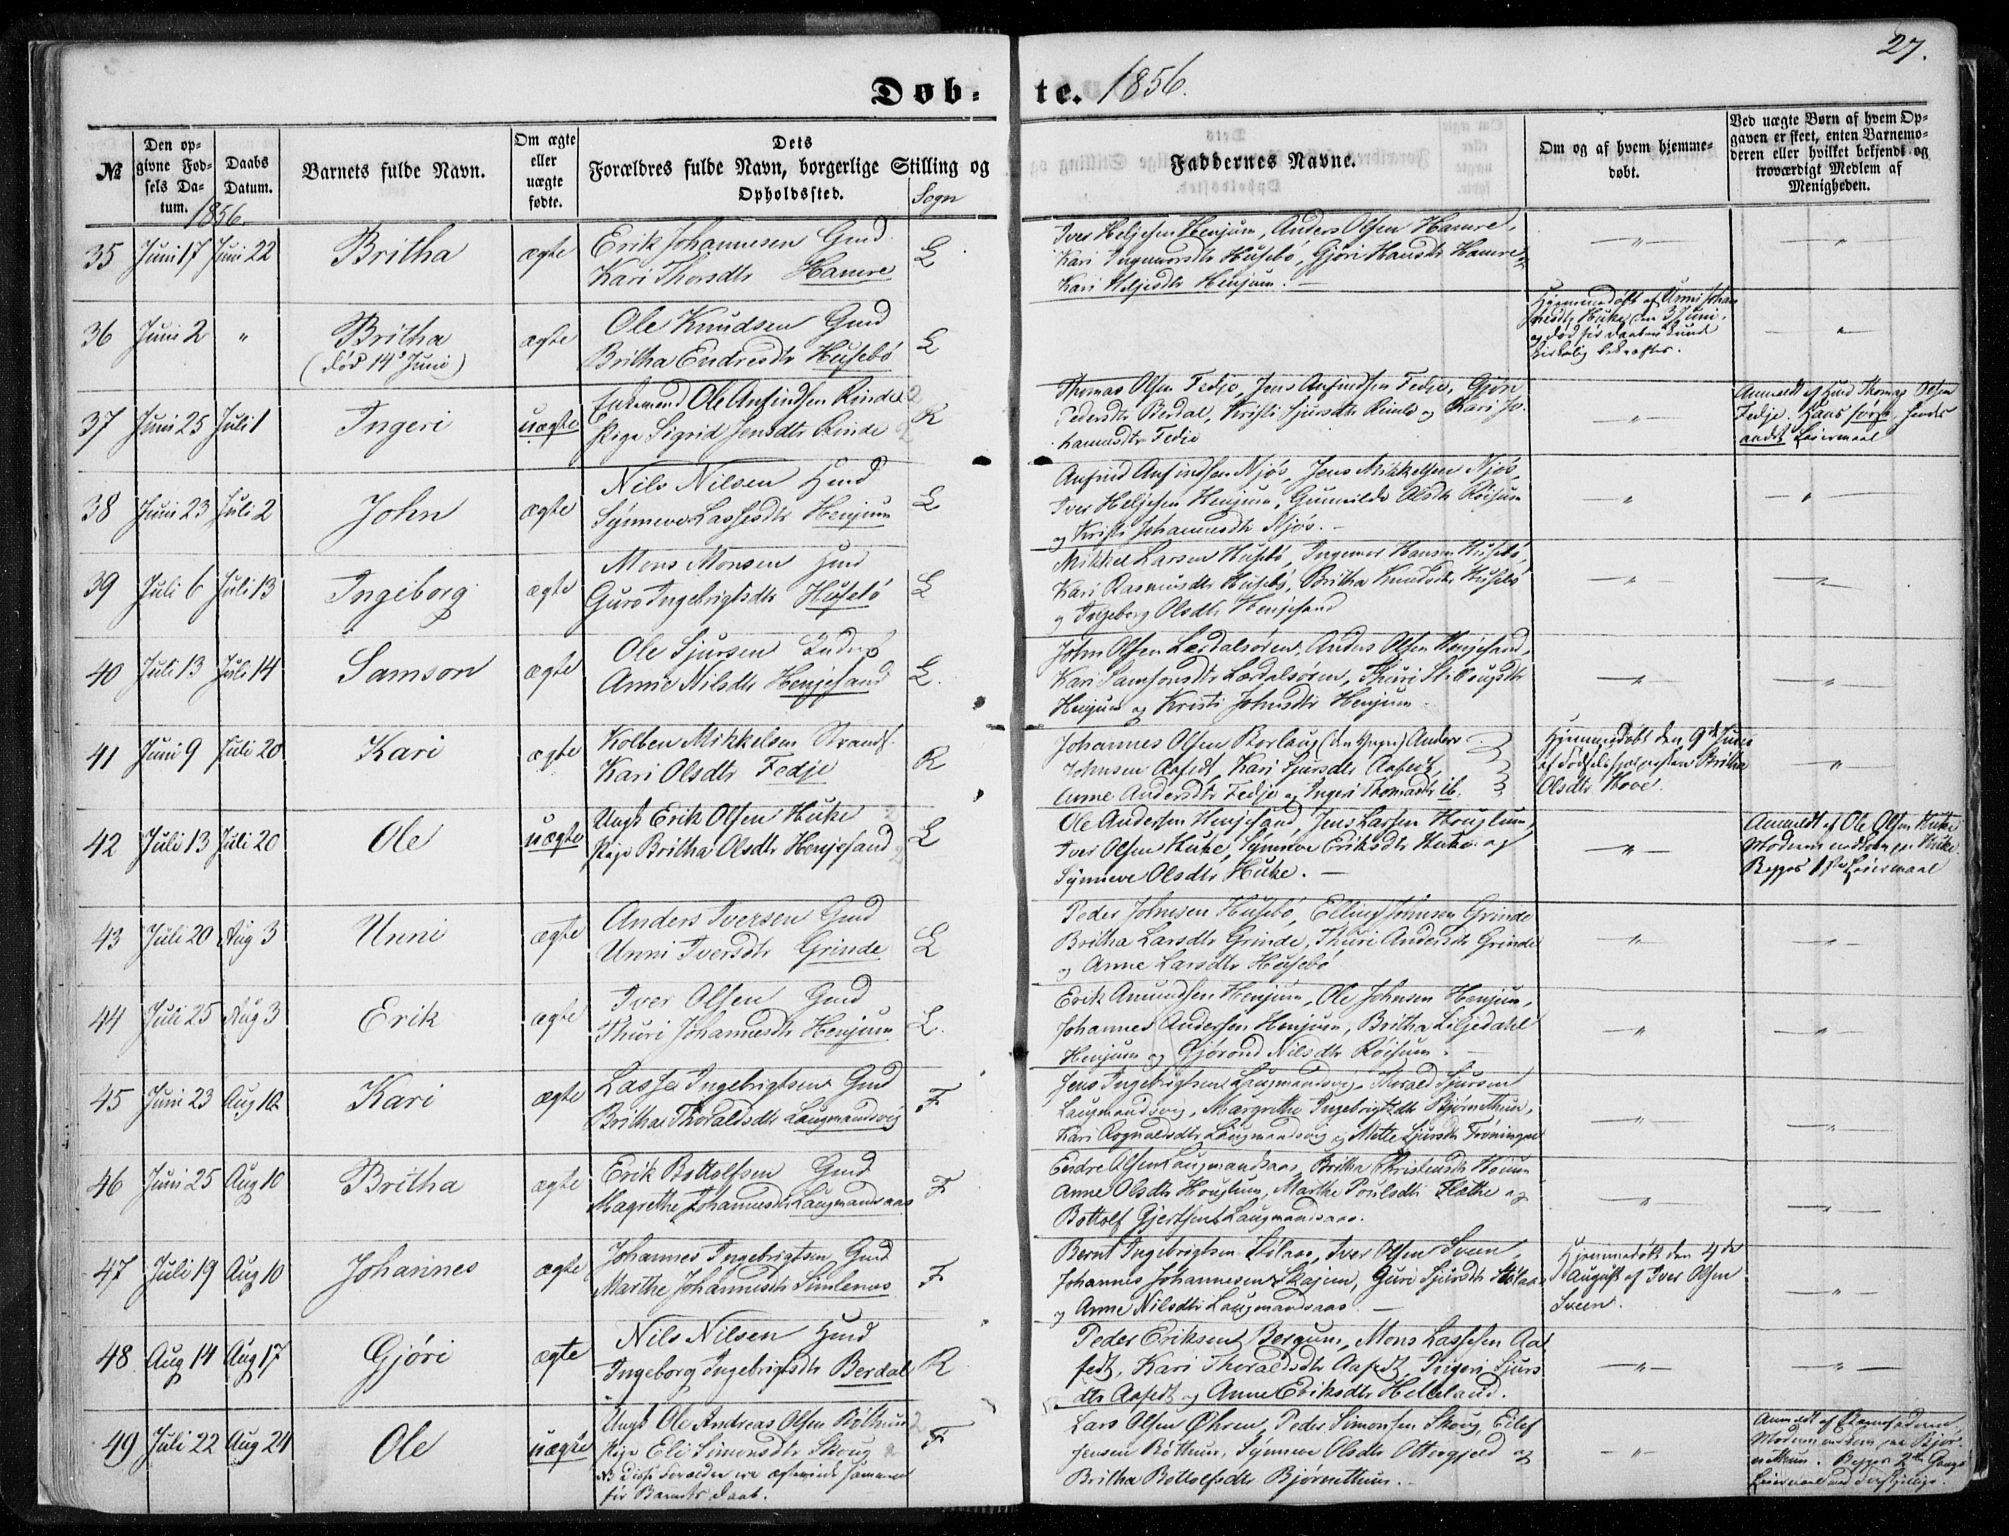 27.
Døb-te. 1856.
№
Den opgivne Fødsels Datum.
Daabs Datum.
Barnets fulde Navn.
Om ægte eller uægte fødte.
Dets Forældres fulde Navn, borgerlige Stilling og Opholdssted.
Sogn
Faddernes Navne.
Om og af hvem hjemmedøbt.
Ved uægte Børn af hvem Opgaven er skeet, enten Barnemoderen eller hvilket bekjendt og troværdigt Medlem af Menigheden.
1856.
35 Juni 17 Juni 22 Britha ægte Erik Johannesen Gmd
Kari Thorsdtr Hamre L
Iver Heljesen Henjum, Anders Olsen Hamre,
Kari Ingemorsdtr Husebö, Gjöri Hansdtr Hamre &
Kari Heljesdtr Henjum. — " — "
36 Juni 2 " Britha
(död 14de Juni) ægte Ole Knudsen Gmd
Britha Endresdtr Husebö L
Hjemmedöbt af Unni Johannesdtr Huke den 3 Juni,
og död för Daaben kunde
kirkelig bekræftes. "
37 Juni 25 Juli 1 Ingeri uægte Enkemand Ole Anfindsen Rinde 2
Pige Sigrid Jensdtr Rinde 2 R
Thomas Olsen Fedje, Jens Anfindsen Fedje, Gjöri
Pedersdtr Berdal, Kristi Sjursdtr Rinde og Kari Johannesdtr Fedje
"
Anmeldt af Hmd Thomas Olsen
Fedje. Hans förste, hendes
andet Leiermaal
38 Juni 23 Juli 2 John ægte Nils Nilsen Hmd
Synneve Lassesdtr Henjum L
Anfind Anfindsen Njös, Jens Mikkelsen Njös,
Iver Heljesen Henjum, Gunnilde Olsdtr Röisum
og Kristi Johannesdtr Njös. — " "
39 Juli 6 Juli 13 Ingeborg ægte Mons Monsen Hmd
Guro Ingebrigtsdtr Husebö L
Mikkel Larsen Husebö, Ingemor Hansen Husebö,
Kari Rasmusdtr Husebö, Britha Knudsdtr Husebö
og Ingeborg Olsdtr Henjesand " "
40 Juli 13 Juli 14 Samson ægte Ole Sjursen Inderst
Anne Nilsdtr Henjesand L.
John Olsen Lærdalsören, Anders Olsen Henjesand,
Kari Samsonsdtr Lærdalsören, Thuri
Henjum og Kristi Johnsdtr Henjum — " "
41 Juni 9 Juli 20 Kari ægte Kolben Mikkelsen Strands.
Kari Olsdtr Fedje R
Johannes Olsen Borlaug (den Yngre) Anders
Johnsen Aafedt, Kari Sjursdtr Aafedt,
Anne Andersdtr Fedje og Ingeri Thomasdtr ib.
Hjemmedöbt den 9de Juni
af Födselshjælpersken Britha
Olsdtr Hove. "
42 Juli 13 Juli 20 Ole uægte Ungk Erik Olsen Huke 2
Pige Britha Olsdtr Henjesand 2 L
Ole Andersen Henjesand, Jens Larsen Houglum,
Iver Olsen Huke, Synneve Eriksdtr Huke og
Synneve Olsdtr Huke. — "
Anmeldt af Ole Olsen Huke
Moderens Huke.
Begges 1ste Leiermaal
43 Juli 20 Aug 3 Unni ægte Anders Iversen Gmd
Unni Iversdtr Grinde L
Peder Johnsen Husebö, Elling Johnsen Grinde
Britha Larsdtr Grinde, Thuri Andersdtr Grinde
og Anne Larsdtr Husebö " "
44 Juli 25 Aug 3 Erik ægte Iver Olsen Gmd
Thuri Johannesdtr Henjum L.
Erik Amundsen Henjum, Ole Johnsen Henjum,
Johannes Andersen Henjum, Britha Liljedahl
Henjum og Gjörond Nilsdtr Röisum. " "
45 Juni 23 Aug 10 Kari ægte Lasse Ingebrigtsen Gmd
Britha Thoraldsdtr Laugmandsvig F
Jens Ingebrigtsen Laugmandsvig, Thorald Sjursen
Laugmandsvig, Margrethe Ingebrigtsdtr Björnethun,
Kari Rognaldsdtr Laugmandsvig og Mette Sjursdtr Frönningen " "
46 Juni 25 Aug 10 Britha ægte Erik Bottolfsen Gmd
Magrethe Johannesdtr Laugmandsaas F
Endre Olsen Laugmandsaas, Britha Christensdtr
Anne Olsdtr Houglum, Marthe Poulsdtr Flæthe og
Bottolf Gjertsen Laugmandsaas. " "
47 Juli 19 Aug 10 Johannes ægte Johannes Ingebrigtsen Gmd
Marthe Johannesdtr Simlenes F
Bernt Ingebrigtsen Stölaas, Iver Olsen Sveen,
Johannes Johannesen Skajem, Guri Sjursdtr Stölaas
og Anne Nilsdtr Laugmandsaas —
Hjemmedöbt den 4de
August af Iver Olsen
Sveen. "
48 Aug 14 Aug 17 Gjöri ægte Nils Nilsen Hmd
Ingeborg Ingebrigtsdtr Berdal R
Peder Eriksen Bergum, Mons Lassesen Aafedt, Kari Thoraldsdtr Aafedt, Ingeri Sjursdtr Aafedt og Anne Eriksdtr Helleland. " "
49 Juli 22 Aug 24 Ole uægte Ungk Ole Andreas Olsen Böthun 2
Pige Eli Simonsdtr Skoug 2 F
NB Disse Forældre ere ægteviede sammen
för Barnets Daab.
Lars Olsen Öhren, Peder Simonsen Skoug, Eilef
Jensen Böthun, Synneve Olsdtr Ottergjeld og
Britha Bottolfsdtr Björnethun. "
Anmeldt af Barnefaderen
Björnethun. Begges 2den Gangs
Leiermaal med forskjellige.